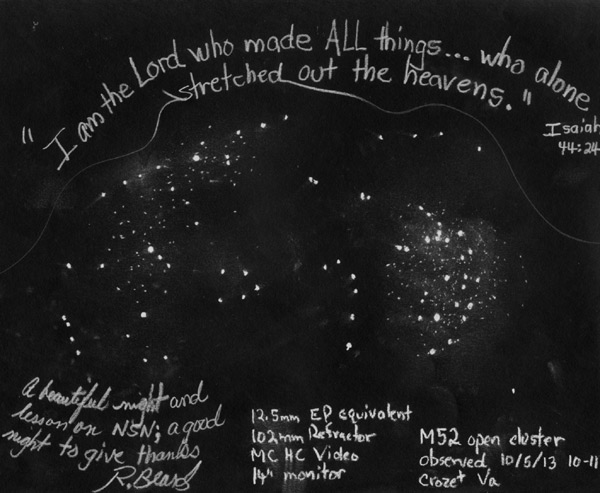 "I am the Lord who made ALL things... who alone
stretched out the heavens."
Isaiah
44:24
A beautiful night and
lesson on NSN; a good
night to give thanks
R. Beard
12.5mm EP equivalent
102mm Refractor
MC HC Video
14" monitor
M52 open cluster
observed 10/5/13 10-11
Crozet Va